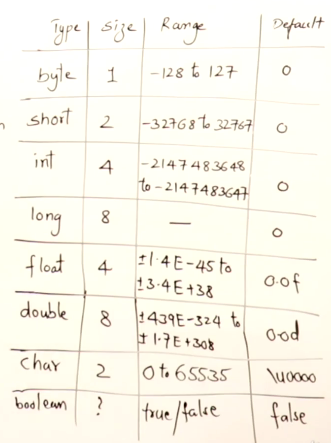 Type Size Range Default
byte 1 -128 to 127 0
short 2 -32768 to 32767 0
int 4 -2147483648
to -2147483647 0
long 8 — 0
float 4 ±1.4E-45 to
±3.4E+38 0.0f
double 8 ±439E-324 to
±1.7E+308 0.0d
Char 2 0 to 65535 \u0000
boolean ? true/false false